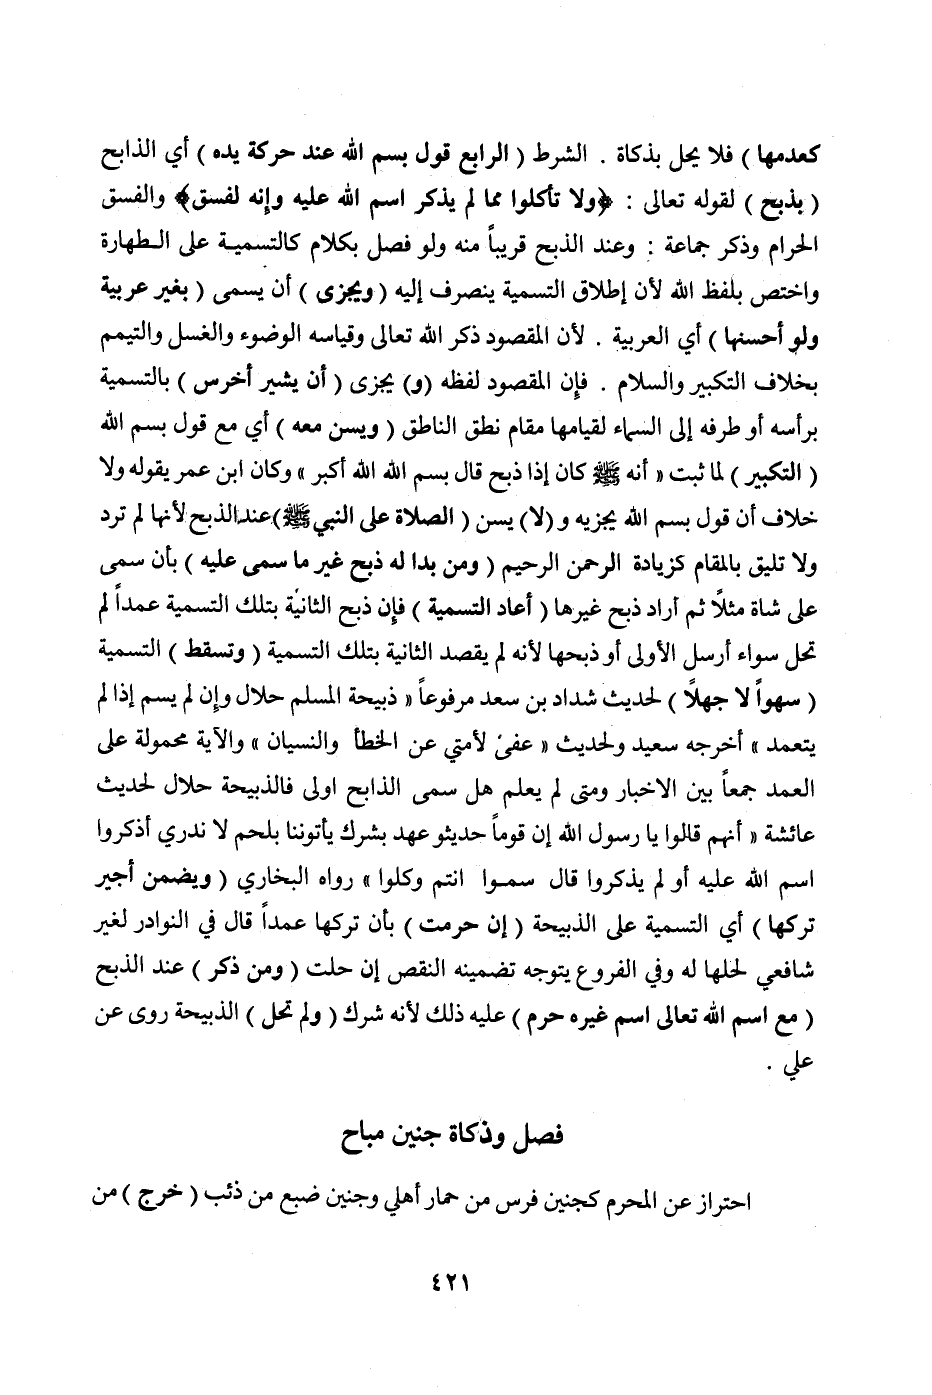 كعدمها ) فلا يحل بذكاة . الشرط ( الرابع قول بسم الله عند حركة يده ) أي الذابح
( بذبح ) لقوله تعالى : ﴿ولا تأكلوا مما لم يذكر اسم الله عليه وإنه لفسق﴾ والفسق
الحرام وذكر جماعة : وعند الذبح قريباً منه ولو فصل بكلام كالتسمية على الطهارة
واختص بلفظ الله لأن إطلاق التسمية ينصرف إليه ( ويجزى ) أن يسمى ( بغير عربية
ولو أحسنها ) أي العربية . لأن المقصود ذكر الله تعالى وقياسه الوضوء والغسل والتيمم
بخلاف التكبير والسلام . فإن المقصود لفظه (و) يجزى ( أن يشير أخرس ) بالتسمية
برأسه أو طرفه إلى السماء لقيامها مقام نطق الناطق ( ويسن معه ) أي مع قول بسم الله
( التكبير ) لما ثبت « أنه ﷺ كان إذا ذبح قال بسم الله الله أكبر » وكان ابن عمر يقوله ولا
خلاف أن قول بسم الله يجزيه و (لا) يسن ( الصلاة على النبي ﷺ) عند الذبح لأنها لم ترد
ولا تليق بالمقام كزيادة الرحمن الرحيم ( ومن بدا له ذبح غير ما سمى عليه ) بأن سمى
على شاة مثلاً ثم أراد ذبح غيرها ( أعاد التسمية ) فإن ذبح الثانية بتلك التسمية عمداً لم
تحل سواء أرسل الأولى أو ذبحها لأنه لم يقصد الثانية بتلك التسمية ( وتسقط ) التسمية
( سهواً لا جهلاً ) لحديث شداد بن سعد مرفوعاً « ذبيحة المسلم حلال وإن لم يسم إذا لم
يتعمد » أخرجه سعيد ولحديث « عفىٰ لأمتي عن الخطأ والنسيان » والآية محمولة على
العمد جمعاً بين الاخبار ومتى لم يعلم هل سمى الذابح اولى فالذبيحة حلال لحديث
عائشة « أنهم قالوا يا رسول الله إن قوماً حديثو عهد بشرك يأتوننا بلحم لا ندري أذكروا
اسم الله عليه أو لم يذكروا قال سموا انتم وكلوا » رواه البخاري ( ويضمن أجير
تركها ) أي التسمية على الذبيحة ( إن حرمت ) بأن تركها عمداً قال في النوادر لغير
شافعي لحلها له وفي الفروع يتوجه تضمينه النقص إن حلت ( ومن ذكر ) عند الذبح
( مع اسم الله تعالى اسم غيره حرم ) عليه ذلك لأنه شرك ( ولم تحل ) الذبيحة روى عن
علي .
فصل وذكاة جنين مباح
احتراز عن المحرم كجنين فرس من حمار أهلي وجنين ضبع من ذئب ( خرج ) من
٤٢١